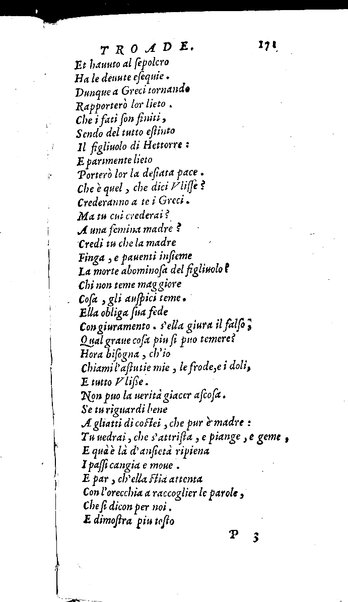 TROADE. 171
Et hauuto al ſepolcro
Ha le deuute eſequie.
Dunque a Greci tornando
Rapporterò lor lieto.
Che i fati ſon finiti,
Sendo del tutto eſtinto
Il figliuolo di Hettorre:
E parimente lieto
Porterò lor la deſiata pace.
Che è quel, che dici Vliſſe?
Crederanno a te i Greci.
Ma tu cui crederai?
A una femina madre?
Credi tu che la madre
Finga, e pauenti inſieme
La morte abominoſa del figliuolo?
Chi non teme maggiore
Coſa, gli auſpici teme.
Ella obliga ſua fede
Con giuramento. s'ella giura il falſo,
Qual graue coſa piu ſi puo temere?
Hora biſogna, ch'io
Chiami l'aſtutie mie, le frode, e i doli,
E tutto Vliſſe.
Non puo la uerità giacer aſcoſa.
Se tu riguardi bene
A gli atti di coſtei, che pur è madre:
Tu uedrai, che s'attriſta, e piange, e geme,
E quà è là d'anſietà ripiena
I paſſi cangia e moue.
E par, ch'ella ſtia attenta
Con l'orecchia a raccoglier le parole,
Che ſi dicon per noi.
E dimoſtra piu toſto
P 3